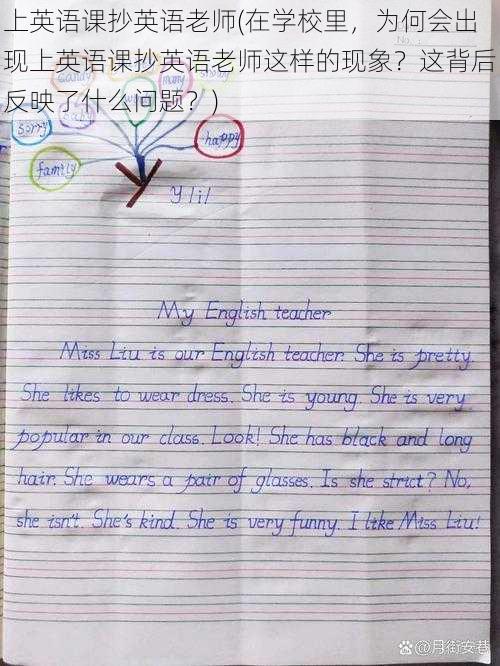 上英语课抄英语老师(在学校里，为何会出
现上英语课抄英语老师这样的现象？这背后
反映了什么问题？)
candy
many
sorry
happy
family
Y /i/
My English teacher
Miss Liu is our English teacher. She is pretty.
She likes to wear dress. She is young. She is very
popular in our class. Look! She has black and long
hair. She wears a pair of glasses. Is she strict? No,
she isn't. She's kind. She is very funny. I like Miss Liu!
@月街安巷